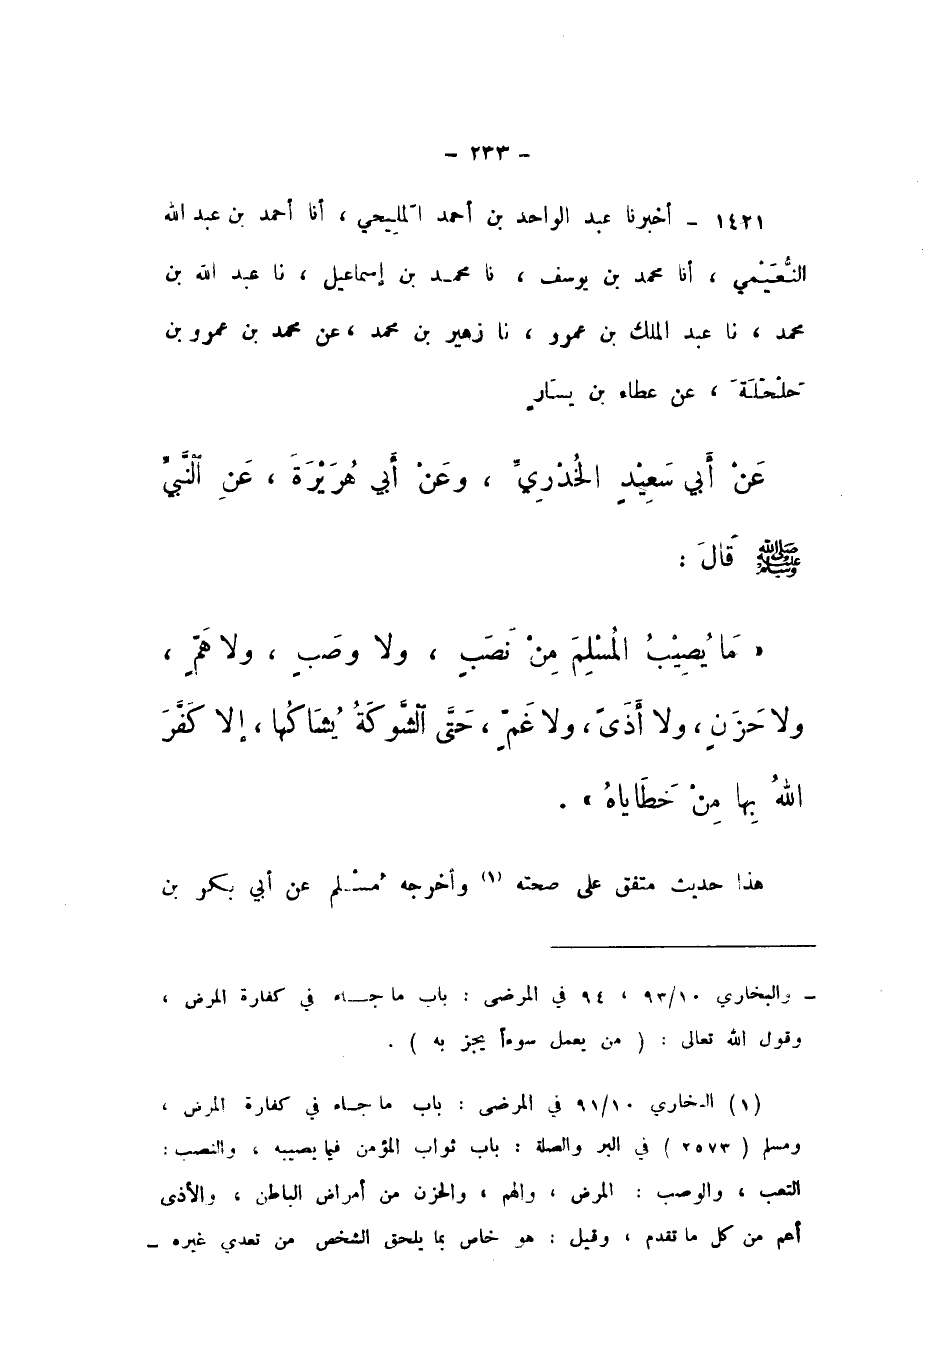 - ٢٣٣ -
١٤٢١ - أخبرنا عبد الواحد بن أحمد المليحي ، أنا أحمد بن عبد الله
النُّعَيْمي ، أنا محمد بن يوسف ، نا محمد بن إسماعيل ، نا عبد الله بن
محمد ، نا عبد الملك بن عمرو ، نا زهير بن محمد ، عن محمد بن عمرو بن
حَلْحَلَةَ ، عن عطاء بن يسَارٍ
عَنْ أَبي سَعِيْدٍ الخُدْرِيِّ ، وعَنْ أَبي هُرَيْرَةَ ، عَنِ ٱلنَّبيِّ
ﷺ قَالَ :
« مَا يُصِيْبُ المُسْلِمَ مِنْ نَصَبٍ ، ولا وصَبٍ ، ولا هَمٍّ ،
ولا حَزَنٍ ، ولا أَذَىً ، ولا غَمٍّ ، حَتَّى ٱلشَّوكَةُ يُشَاكُها ، إلا كَفَّرَ
اللهُ بِها مِنْ خَطَاياهُ » .
هذا حديث متفق على صحته (١) وأخرجه مُسْلم عن أبي بكر بن
ــ والبخاري ٩٣/١٠ ، ٩٤ في المرضى : باب ما جاء في كفارة المرض ،
وقول الله تعالى : ( من يعمل سوءاً يجز به ) .
(١) البخاري ٩١/١٠ في المرضى : باب ما جاء في كفارة المرض ،
ومسلم ( ٢٥٧٣ ) في البر والصلة : باب ثواب المؤمن فيما يصيبه ، والنصب :
التعب ، والوصب : المرض ، والهم ، والحزن من أمراض الباطن ، والأذى
أعم من كل ما تقدم ، وقيل : هو خاص بما يلحق الشخص من تعدي غيره ــ